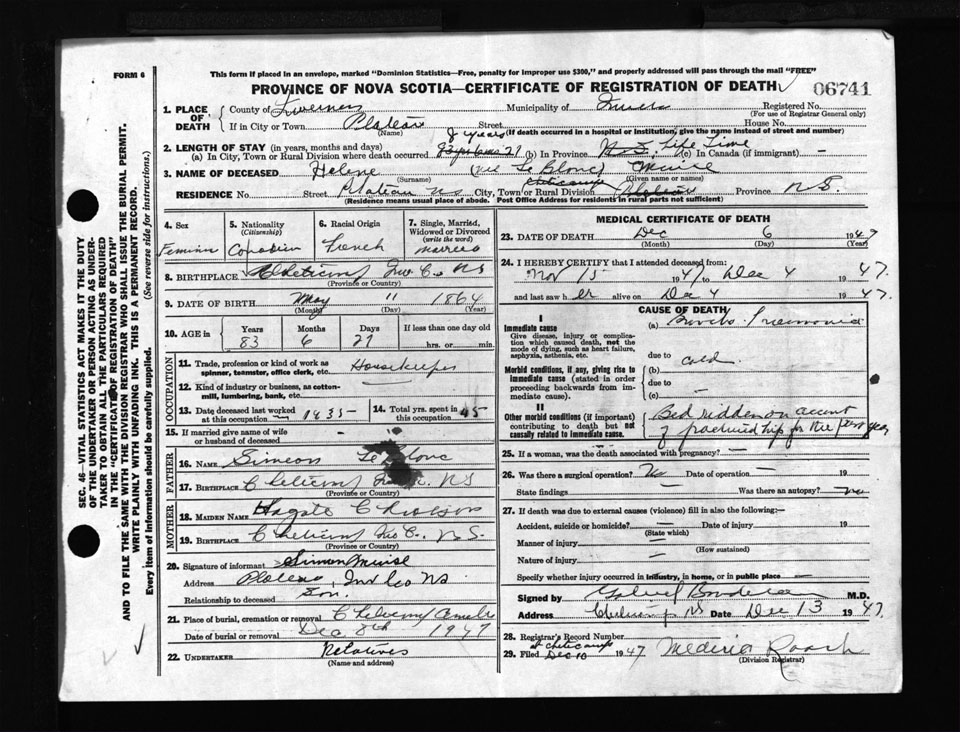 FORM 6
This form if placed in an envelope, marked "Dominion Statistics—Free, penalty for improper use $300," and properly addressed will pass through the mail "FREE"
PROVINCE OF NOVA SCOTIA—CERTIFICATE OF REGISTRATION OF DEATH
06741
1. PLACE OF DEATH
County of Inverness Municipality of Registered No.
(For use of Registrar General only)
If in City or Town Plateau Street House No.
(If death occurred in a hospital or institution, give the name instead of street and number)
2. LENGTH OF STAY (in years, months and days)
(a) In City, Town or Rural Division where death occurred (b) In Province N.S. Life Time (c) In Canada (if immigrant) —
3. NAME OF DECEASED Helene (nee Le Blanc)
(Surname) (Given name or names)
RESIDENCE No. Street Plateau NS City, Town or Rural Division Cheticamp Plateau Province N.S.
(Residence means usual place of abode. Post Office Address for residents in rural parts not sufficient)
4. Sex
5. Nationality (Citizenship)
6. Racial Origin
7. Single, Married, Widowed or Divorced (write the word)
Canadian French
8. BIRTHPLACE Cheticamp Inv Co NS
(Province or Country)
9. DATE OF BIRTH May 11 1864
(Month) (Day) (Year)
10. AGE in Years Months Days If less than one day
83 6 27 hrs. or min.
OCCUPATION
11. Trade, profession or kind of work as spinner, teamster, office clerk, etc. Housekeeper
12. Kind of industry or business, as cotton-mill, lumbering, bank, etc.
13. Date deceased last worked at this occupation 1935 14. Total yrs. spent in this occupation 45
15. If married give name of wife or husband of deceased
FATHER
16. NAME Simeon Le Blanc
17. BIRTHPLACE Cheticamp NS
(Province or Country)
MOTHER
18. MAIDEN NAME
19. BIRTHPLACE Cheticamp Inv Co., N.S.
(Province or Country)
20. Signature of informant Simon
Address Plateau, Inv Co NS
Relationship to deceased Son.
21. Place of burial, cremation or removal Cheticamp
Date of burial or removal Dec 8th 1947
22. UNDERTAKER Relatives
(Name and address)
MEDICAL CERTIFICATE OF DEATH
23. DATE OF DEATH Dec 6 1947
(Month) (Day) (Year)
24. I HEREBY CERTIFY that I attended deceased from:
Nov 15 1947 to Dec 4 1947.
and last saw her alive on Dec 4 1947.
CAUSE OF DEATH
I
Immediate cause
Give disease, injury or complication which caused death, not the mode of dying, such as heart failure, asphyxia, asthenia, etc.
(a) Broncho-Pneumonia
due to cold
Morbid conditions, if any, giving rise to immediate cause (stated in order proceeding backwards from immediate cause).
(b)
due to
(c)
II
Other morbid conditions (if important) contributing to death but not causally related to immediate cause.
Bed ridden on account
of fractured hip for the past year
25. If a woman, was the death associated with pregnancy? —
26. Was there a surgical operation? No Date of operation — 19
State findings Was there an autopsy? no
27. If death was due to external causes (violence) fill in also the following:—
Accident, suicide or homicide? — Date of injury 19
(State which)
Manner of injury —
(How sustained)
Nature of injury —
Specify whether injury occurred in industry, in home, or in public place —
Signed by M.D.
Address Cheticamp NS Date Dec 13 1947
28. Registrar's Record Number
29. Filed at Cheticamp Dec 10 1947
(Division Registrar)
SEC. 46—VITAL STATISTICS ACT MAKES IT THE DUTY
OF THE UNDERTAKER OR PERSON ACTING AS UNDERTAKER
TO OBTAIN ALL THE PARTICULARS REQUIRED
IN THE "CERTIFICATE OF REGISTRATION OF DEATH"
AND TO FILE THE SAME WITH THE DIVISION REGISTRAR WHO SHALL ISSUE THE BURIAL PERMIT.
WRITE PLAINLY WITH UNFADING INK. THIS IS A PERMANENT RECORD.
Every item of information should be carefully supplied. (See reverse side for instructions.)